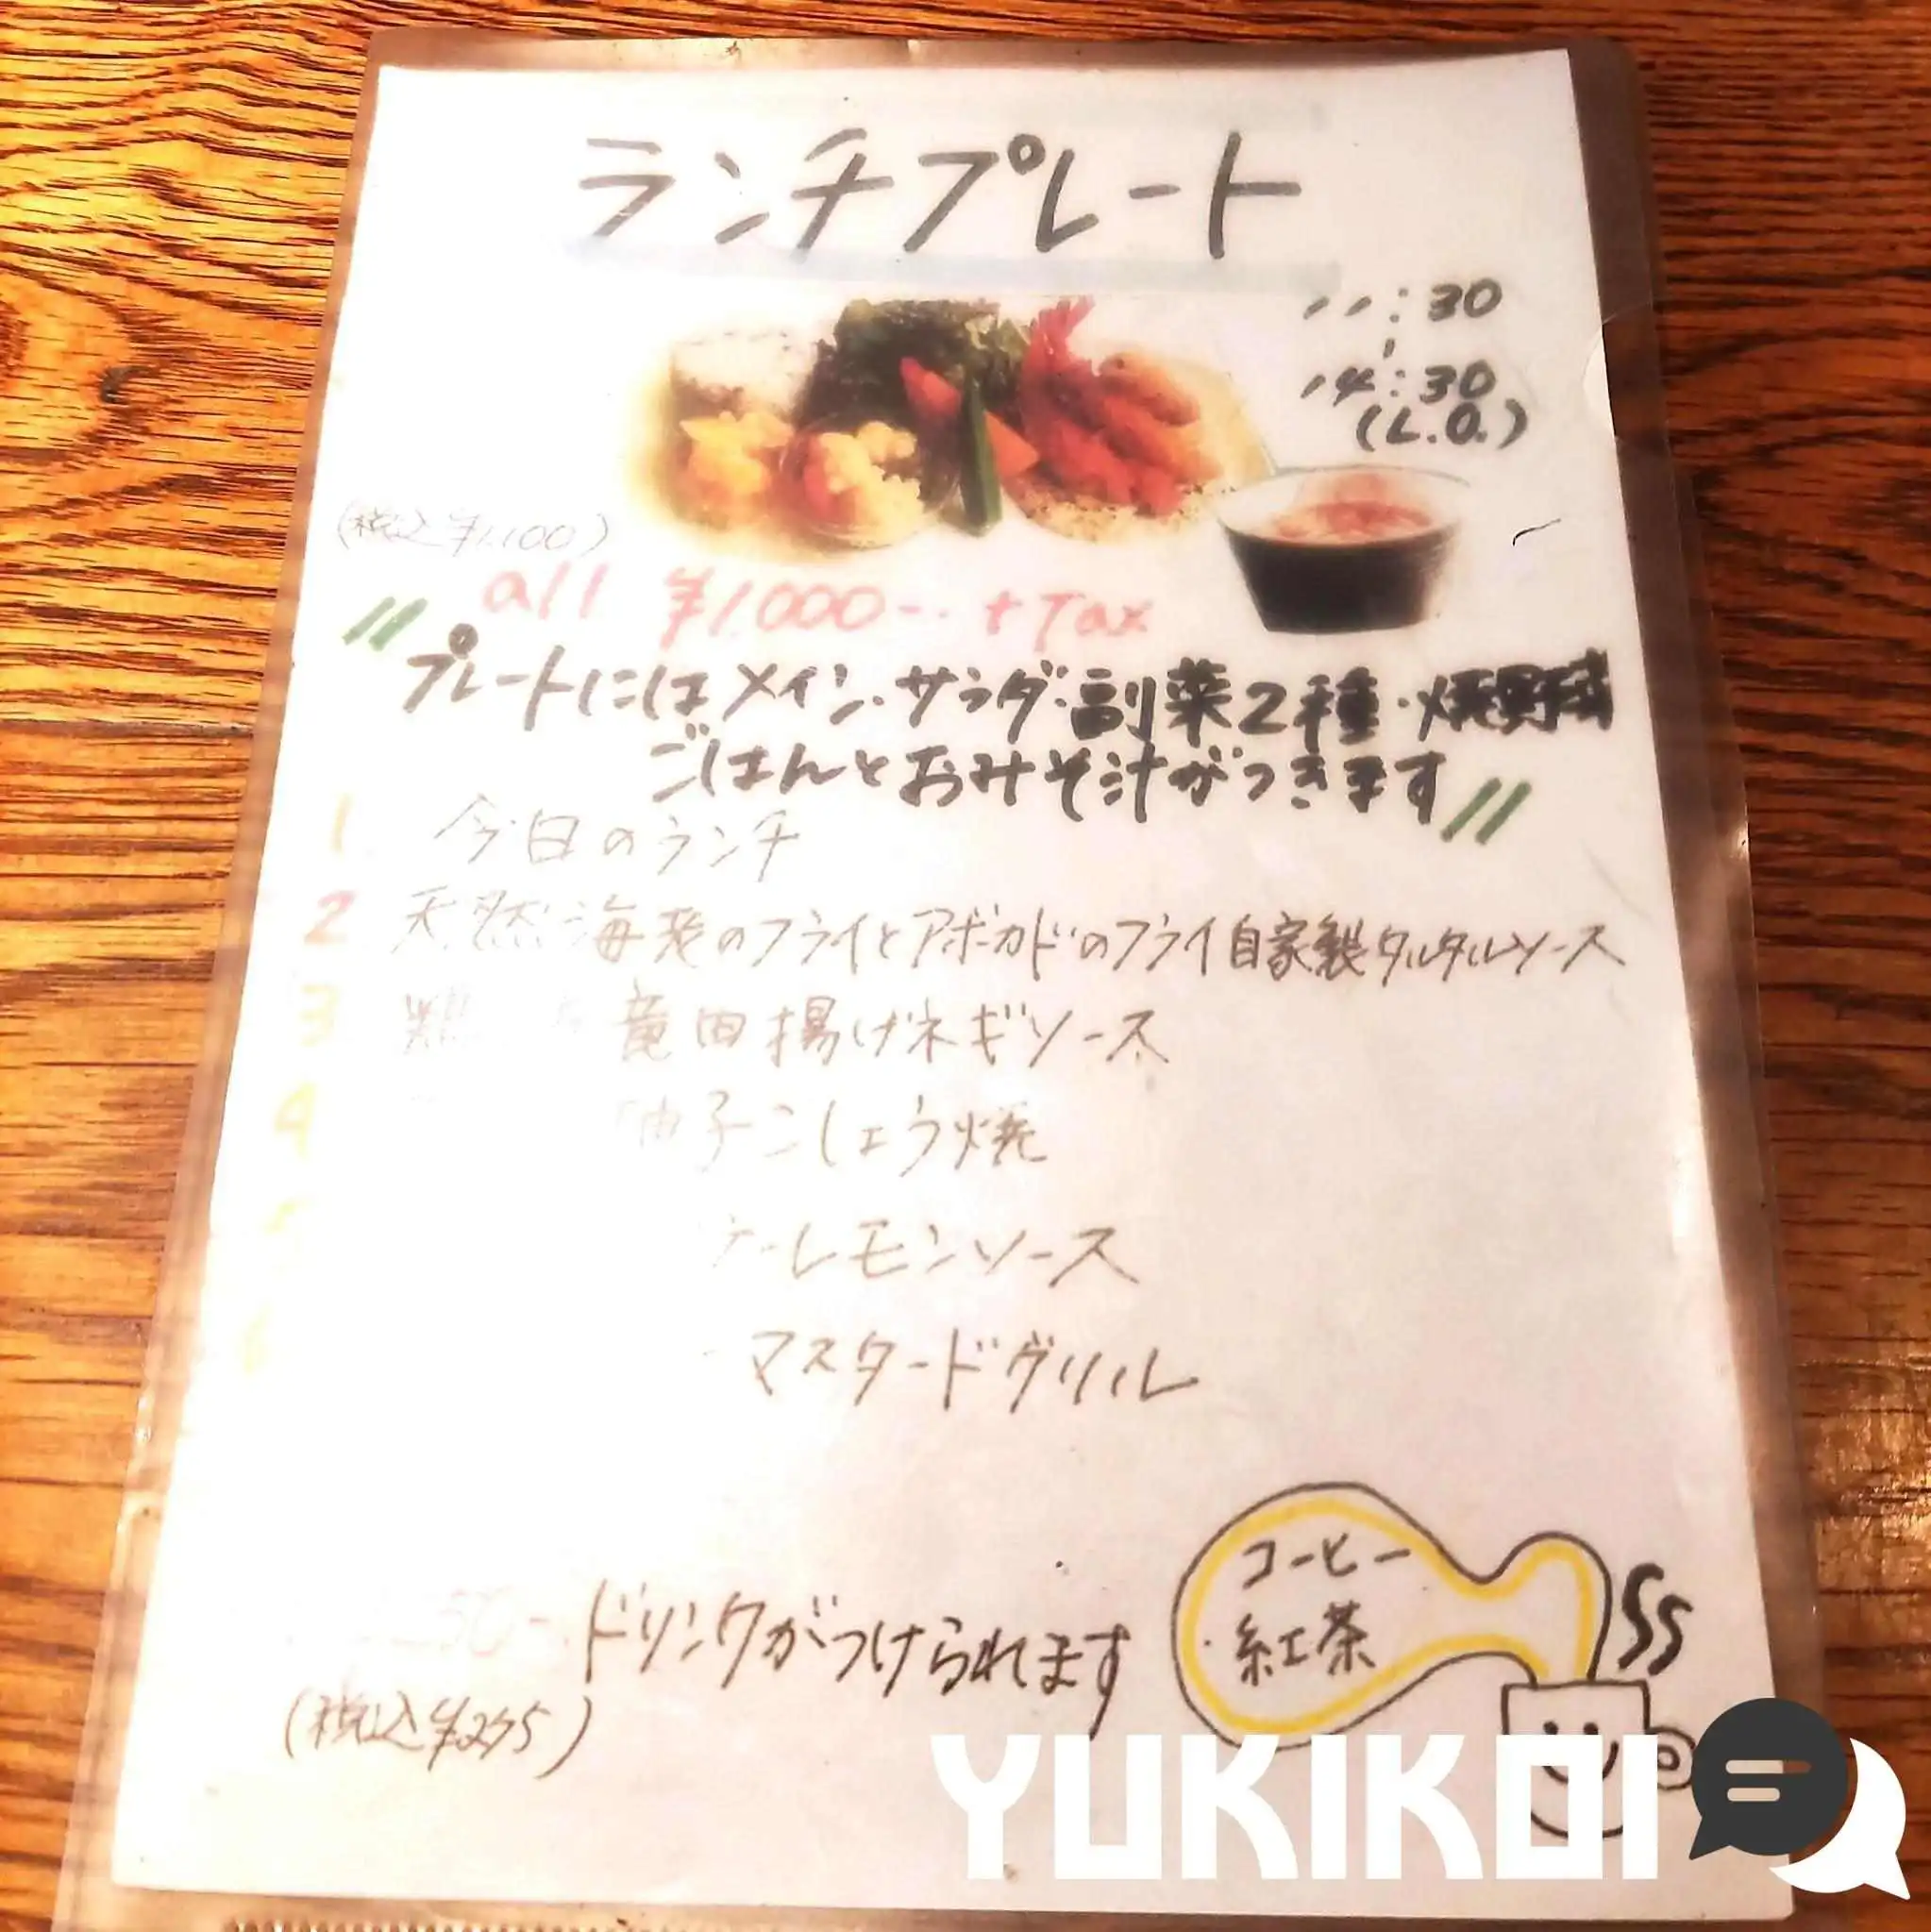 ランチプレート
11:30
14:30
(L.O.)
(税込¥1,100)
all ¥1,000-. +Tax
プレートにはメイン・サラダ・副菜2種・焼野菜
ごはんとおみそ汁がつきます
1 今日のランチ
2 天然海老のフライとアボカドのフライ自家製タルタルソース
3 竜田揚げネギソース
4 柚子こしょう焼
レモンソース
マスタードグリル
ドリンクがつけられます
(税込¥275)
コーヒー
・紅茶
YUKIKOI